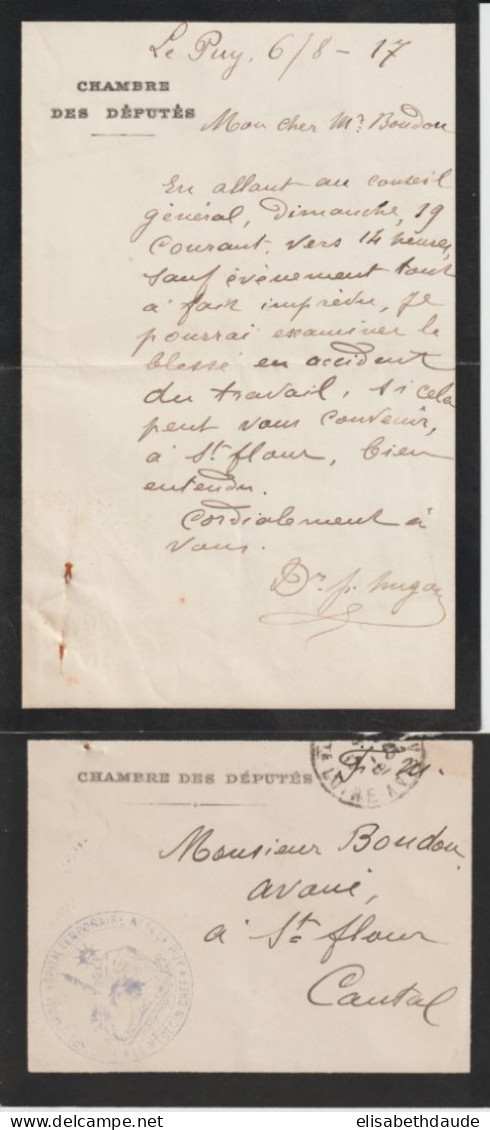 Le Puy, 6/8-17
CHAMBRE
DES DÉPUTÉS
Mon cher Mr. Boudon
En allant au conseil
général, dimanche, 19
courant, vers 14 heures,
sauf évènement tout
à fait imprévu, je
pourrai examiner le
blessé en accident
du travail, si cela
peut vous convenir,
à St. flour, bien
entendu.
Cordialement à
vous.
Dr.
CHAMBRE DES DÉPUTÉS
LOIRE
Monsieur Boudon,
avoué,
à St. flour
Cantal
HOPITAL TEMPORAIRE
LE MÉDECIN CHEF
elisabethdaude